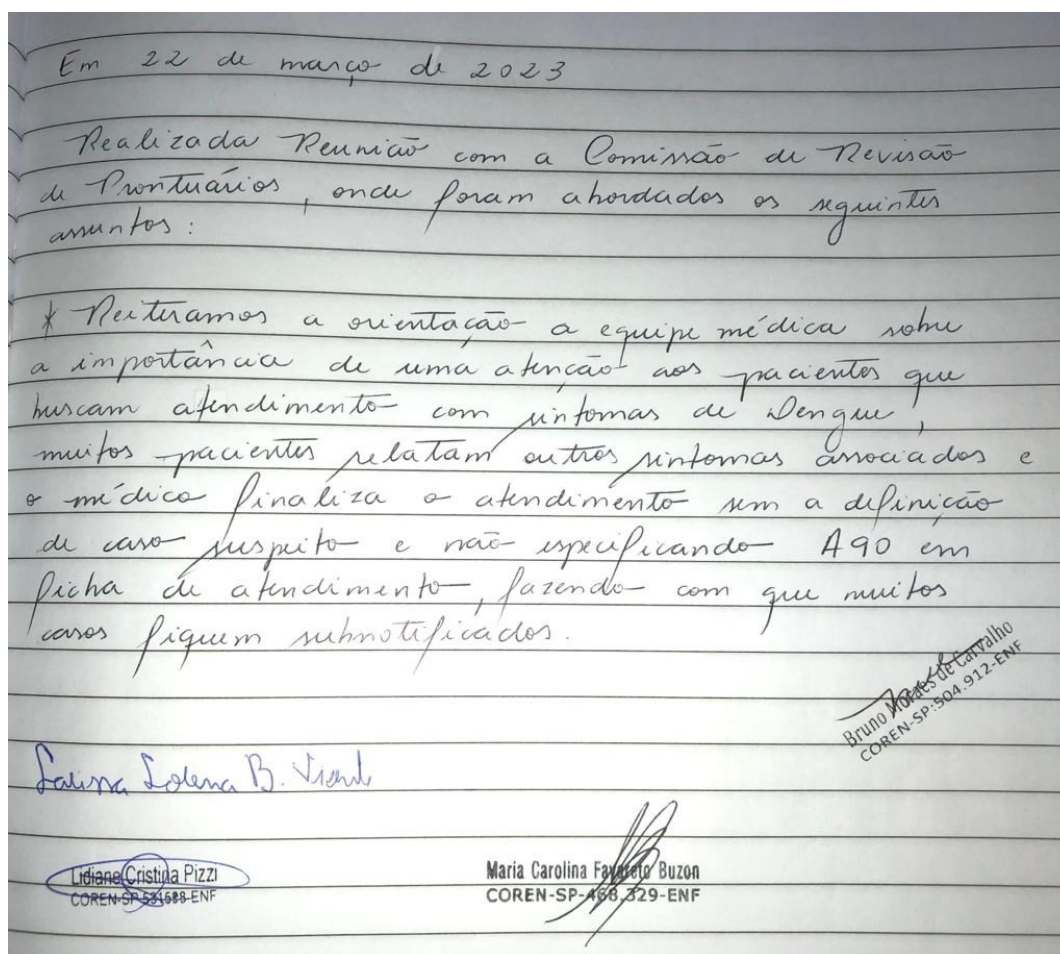 Em 22 de março de 2023
Realizada Reunião com a Comissão de Revisão
de Prontuários, onde foram abordados os seguintes
assuntos:
* Reiteramos a orientação a equipe médica sobre
a importância de uma atenção aos pacientes que
buscam atendimento com sintomas de Dengue,
muitos pacientes relatam outros sintomas associados e
o médico finaliza o atendimento sem a definição
de caso suspeito e não especificando A90 em
ficha de atendimento, fazendo com que muitos
casos fiquem subnotificados.
Bruno Moraes de Carvalho
COREN-SP:504.912-ENF
Larissa Lorena B.
Lidiane Cristina Pizzi
COREN-SP 531588-ENF
Maria Carolina Favareto Buzon
COREN-SP-468.329-ENF